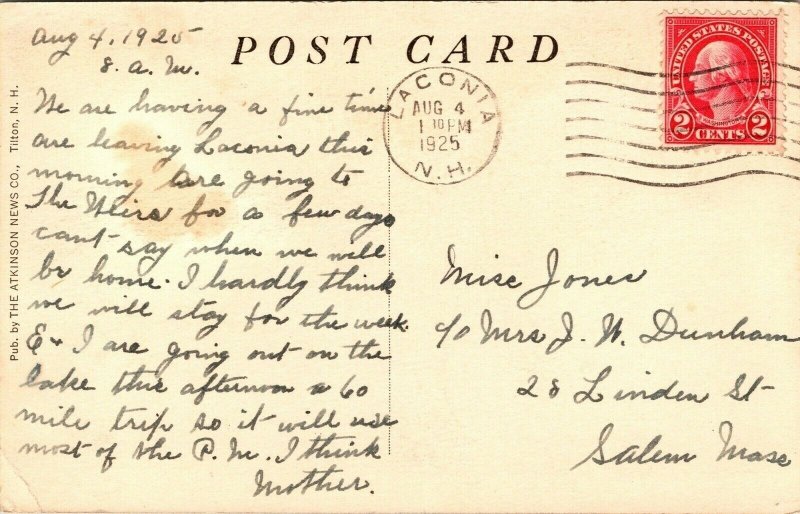 Aug 4, 1925
8. a. m.
We are having a fine time
are leaving Laconia this
morning & are going to
The Weirs for a few days
cant say when we will
be home. I hardly think
we will stay for the week.
E & I are going out on the
lake this afternoon a 60
mile trip so it will use
most of the P. M. I think
Mother.
POST CARD
LACONIA
AUG 4
1 30 PM
1925
N. H.
UNITED STATES POSTAGE
WASHINGTON
2 CENTS 2
Miss Jones
c/o Mrs J. W. Dunham
28 Linden St
Salem Mass
Pub. by THE ATKINSON NEWS CO., Tilton, N. H.